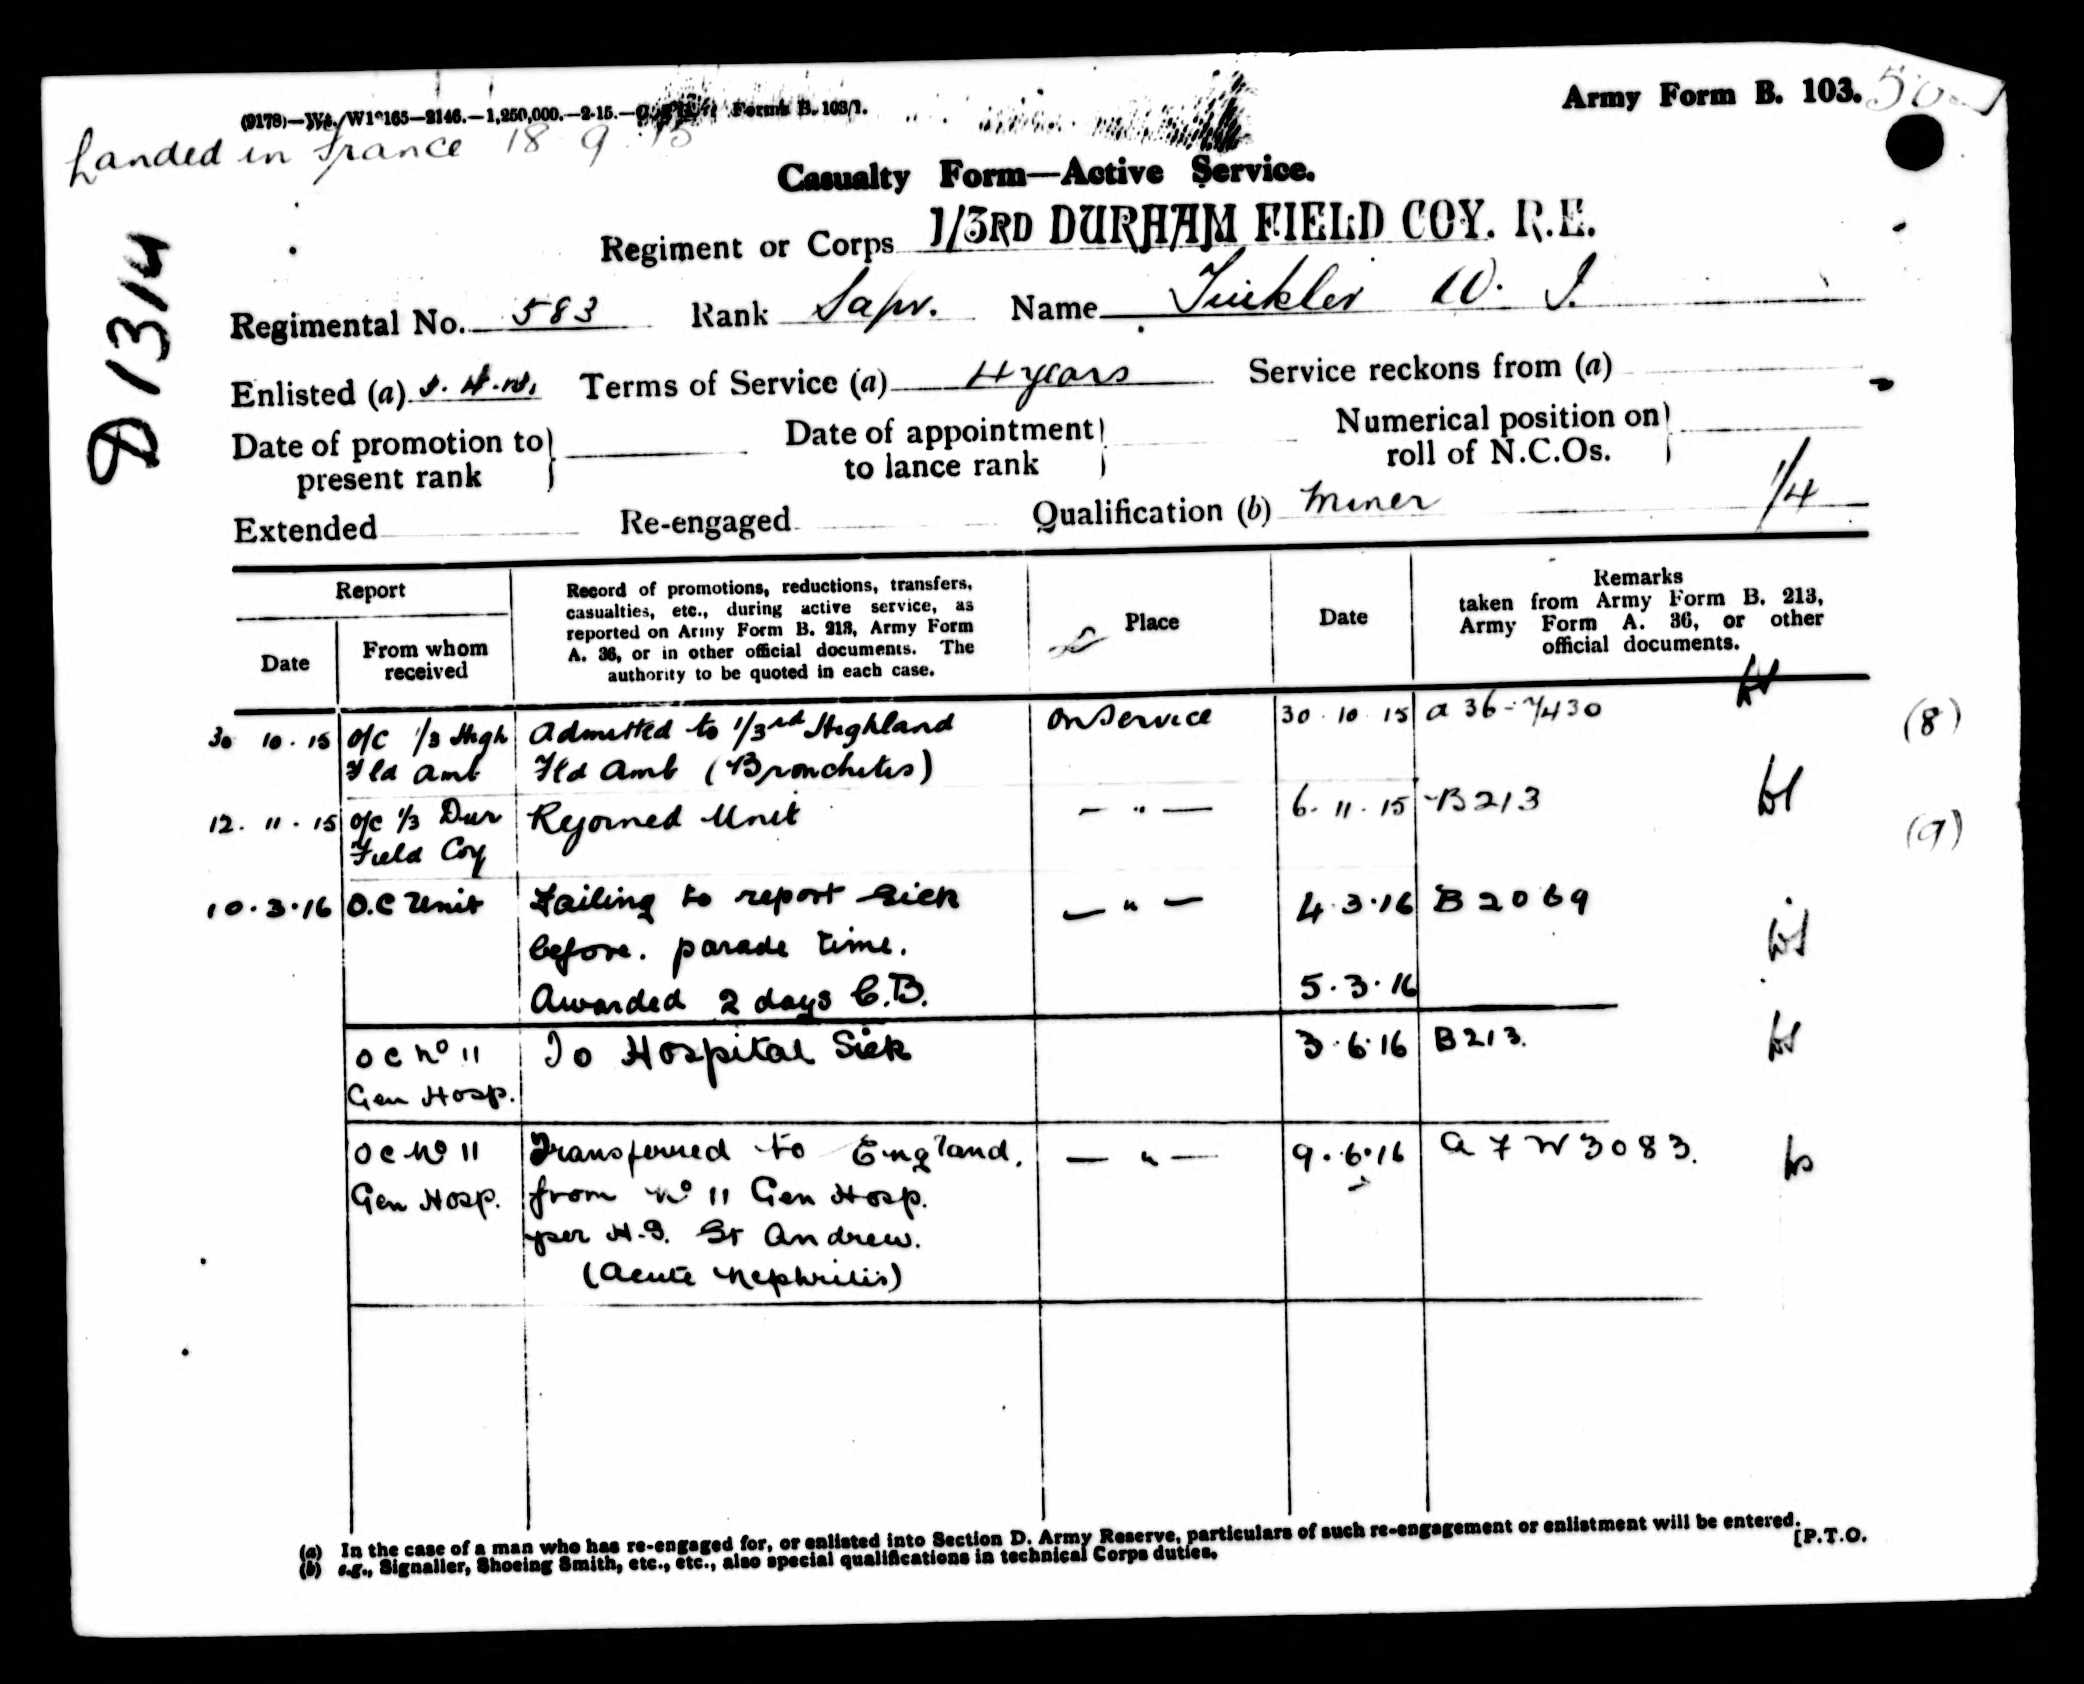 Army Form B. 103.
Forms B. 103/1.
Landed in France 18 9 15
Casualty Form—Active Service.
D 1314
Regiment or Corps 1/3RD DURHAM FIELD COY. R.E.
Regimental No. 583 Rank Sapr. Name Tinkler W. J.
Enlisted (a) Terms of Service (a) 4 years Service reckons from (a)
Date of promotion to present rank Date of appointment to lance rank Numerical position on roll of N.C.Os.
Extended Re-engaged Qualification (b) Miner 1/4
Report
Date
From whom received
Record of promotions, reductions, transfers,
casualties, etc., during active service, as
reported on Army Form B. 213, Army Form
A. 36, or in other official documents. The
authority to be quoted in each case.
Place
Date
Remarks
taken from Army Form B. 213,
Army Form A. 36, or other
official documents.
30 10 . 15 O/C 1/3 High Admitted to 1/3rd Highland on Service 30 . 10 15 a 36 (8)
Fld Amb Fld Amb (Bronchitis)
12 . 11 . 15 O/C 1/3 Dur Rejoined Unit — " — 6 . 11 . 15 B 213 (9)
Field Coy
10.3.16 O.C Unit Failing to report sick — " — 4.3.16 B 2069
before. parade time.
Awarded 2 days C.B. 5.3.16
O C No 11 To Hospital Sick 3.6.16 B 213.
Gen Hosp.
O C No 11 Transferred to England. — " — 9.6.16 A F W 3083.
Gen Hosp. from No 11 Gen Hosp.
per H.S. St Andrew.
(Acute Nephritis)
(a) In the case of a man who has re-engaged for, or enlisted into Section D. Army Reserve, particulars of such re-engagement or enlistment will be entered.
(b) e.g., Signaller, Shoeing Smith, etc., etc., also special qualifications in technical Corps duties.
[P.T.O.